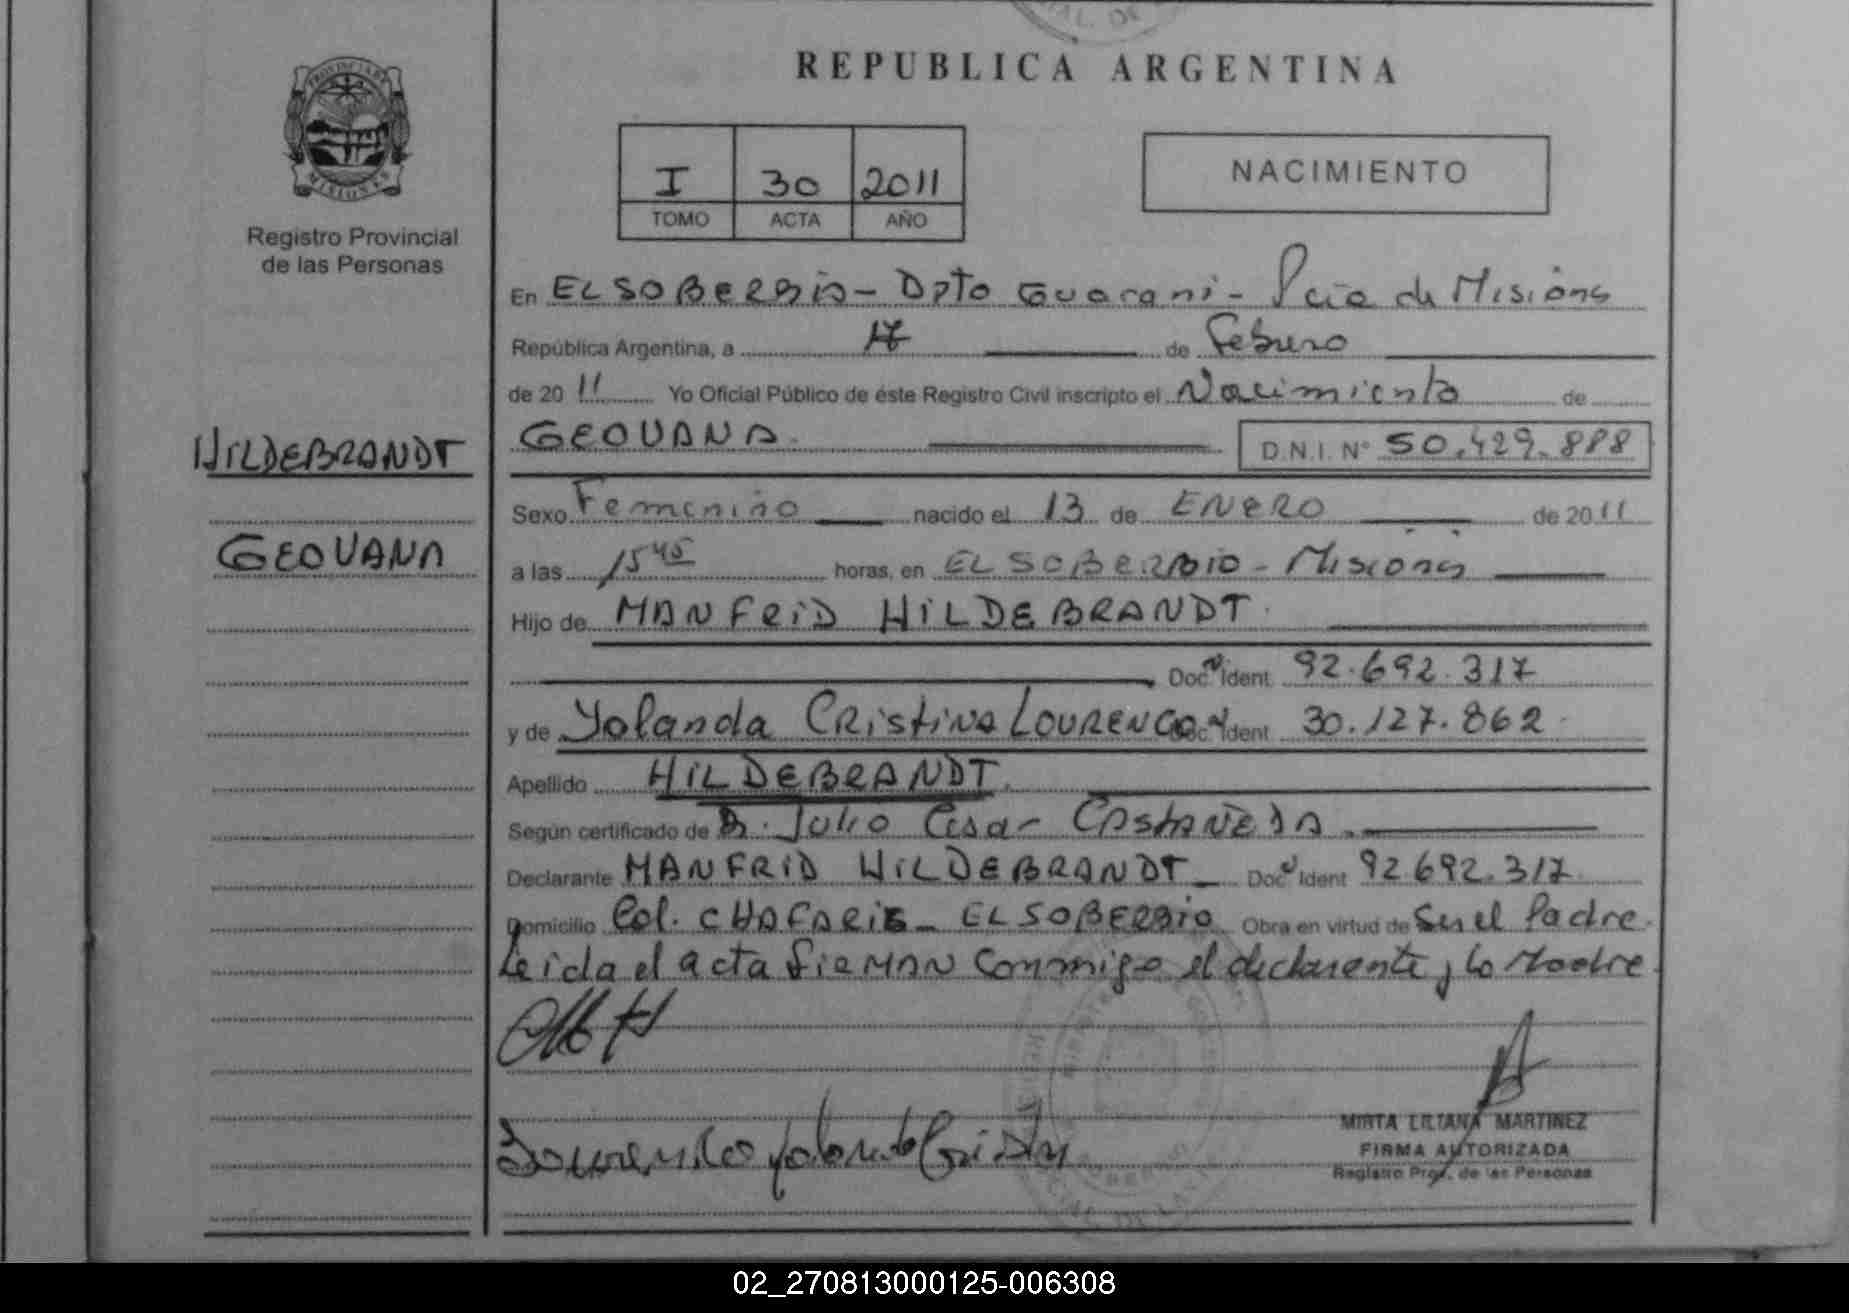 REPUBLICA ARGENTINA
PROVINCIA DE
MISIONES
Registro Provincial
de las Personas
I 30 2011
TOMO ACTA AÑO
NACIMIENTO
En EL SOBERBIO - Dpto Guarani - Pcia de Misiones
República Argentina, a 17 de Febrero
de 2011 Yo Oficial Público de éste Registro Civil inscripto el Nacimiento de
HILDEBRANDT
GEOVANA. D.N.I. Nº 50.429.888
Sexo Femenino nacido el 13 de ENERO de 2011
GEOVANA
a las 15 45 horas, en EL SOBERBIO - Misiones
Hijo de MANFRID HILDEBRANDT.
Doc. Ident. 92.692.317
y de Yolanda CRistiNA LOURENCO Doc. Ident. 30.127.862
Apellido HILDEBRANDT.
Según certificado de Dr. Julio Cesar CAStAÑEDA.
Declarante MANFRID HILDEBRANDT Doc. Ident. 92.692.317
Domicilio Col. CHAFARIS - EL SOBERBIO Obra en virtud de Ser el Padre.
Leida el acta FIRMAN Conmigo el declarante y la Madre.
Lourenco Yolanda Cristina
MIRTA LILIANA MARTINEZ
FIRMA AUTORIZADA
Registro Prov. de las Personas
02_270813000125-006308